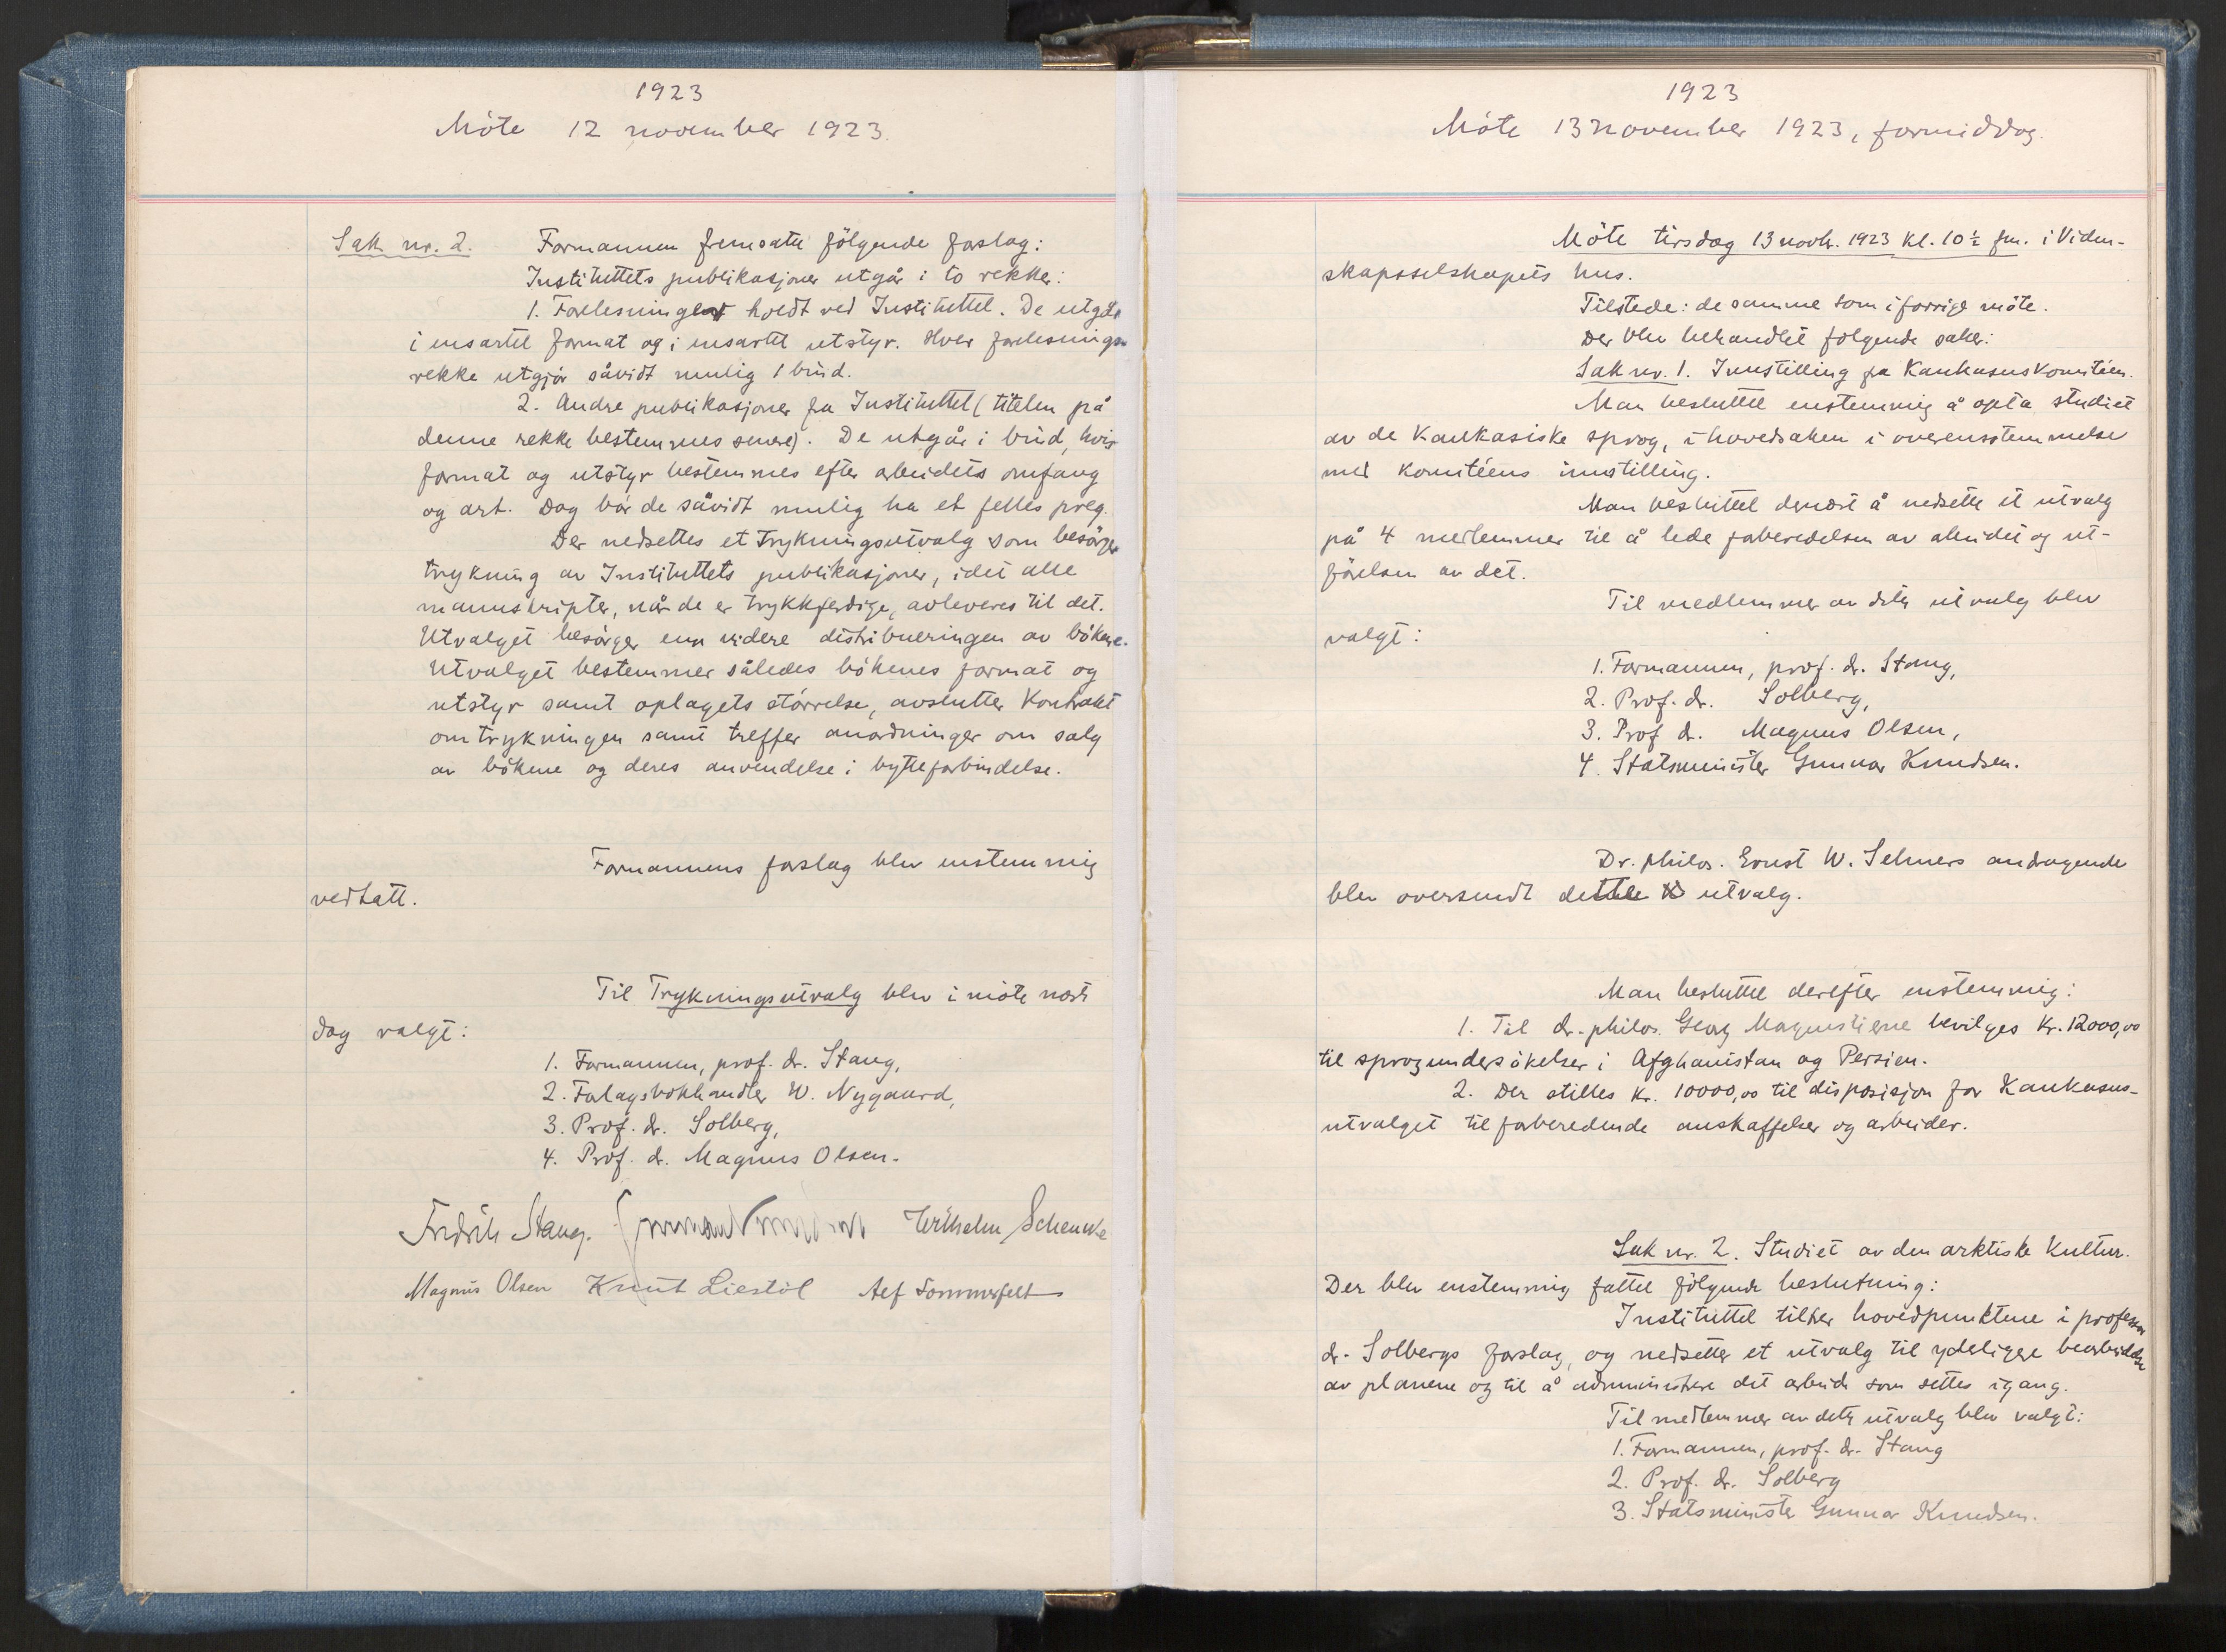 1923
Möte 12 november 1923.
Sak nr. 2. Formannen fremsatte fölgende forslag:
Instituttets publikasjoner utgår i to rekker:
1. Forelesninger holdt ved Instituttet. De utgår
i ensartet format og i ensartet utstyr. Hver forelesnings-
rekke utgjör såvidt mulig 1 bind.
2. Andre publikasjoner fra Instituttet (titelen på
denne rekke bestemmes senere). De utgår i bind, hvis
format og utstyr bestemmes efter arbeidets omfang
og art. Dog bör de såvidt mulig ha et felles preg.
Der nedsettes et Trykningsutvalg som besörger
trykning av Instituttets publikasjoner, idet alle
manuskripter, når de er trykkferdige, avleveres til det.
Utvalget besörger enn videre distribueringen av bökene.
Utvalget bestemmer således bökenes format og
utstyr samt oplagets störrelse, avslutter kontrakt
om trykningen samt treffer anordninger om salg
av bökene og deres anvendelse i bytteforbindelse.
Formannens forslag blev enstemmig
vedtatt.
Til Trykningsutvalg blev i möte næste
dag valgt:
1. Formannen, prof. dr. Stang,
2. Forlagsbokhandler W. Nygaard,
3. Prof. dr. Solberg,
4. Prof. dr. Magnus Olsen.
Fredrik Stang. Wilhelm Schencke
Magnus Olsen Knut Liestöl Alf Sommerfelt
1923
Möte 13 november 1923, formiddag.
Möte tirsdag 13 novb. 1923 kl. 10½ fm. i Viden-
skapsselskapets hus.
Tilstede: de samme som i forrige möte.
Der blev behandlet fölgende saker:
Sak nr. 1. Innstilling fra Kaukasuskomitéen.
Man besluttet enstemmig å opta studiet
av de kaukasiske sprog, i hovedsaken i overensstemmelse
med komitéens innstilling.
Man besluttet dernæst å nedsette et utvalg
på 4 medlemmer til å lede forberedelsen av arbeidet og ut-
förelsen av det.
Til medlemmer av dette utvalg blev
valgt:
1. Formannen, prof. dr. Stang,
2. Prof. dr. Solberg,
3. Prof dr. Magnus Olsen,
4. Statsminister Gunnar Knudsen.
Dr. philos. Ernst W. Selmers andragende
blev oversendt dette utvalg.
Man besluttet derefter enstemmig:
1. Til dr. philos. Georg Morgenstierne bevilges kr. 12000,00
til sprogundersökelser i Afghanistan og Persien.
2. Der stilles kr. 10000,00 til disposisjon for Kaukasus-
utvalget til forberedende anskaffelser og arbeider.
Sak nr. 2. Studiet av den arktiske kultur.
Der blev enstemmig fattet fölgende beslutning:
Instituttet tiltrer hovedpunktene i professor
dr. Solbergs forslag, og nedsetter et utvalg til ydeligere bearbeidelse
av planene og til å administrere det arbeide som settes igang.
Til medlemmer av dette utvalg blev valgt:
1. Formannen, prof. dr. Stang
2. Prof. dr. Solberg
3. Statsminister Gunnar Knudsen.